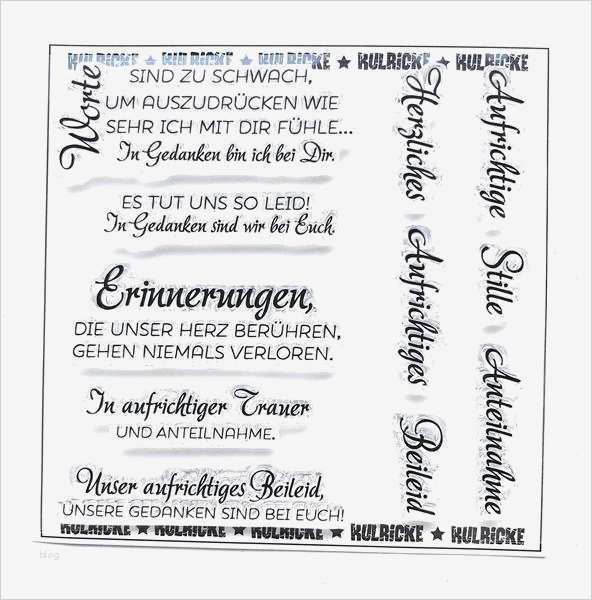 KULRICKE ★ KULRICKE ★ KULRICKE ★ KULRICKE ★ KULRICKE
Worte
SIND ZU SCHWACH,
UM AUSZUDRÜCKEN WIE
SEHR ICH MIT DIR FÜHLE...
In Gedanken bin ich bei Dir.
ES TUT UNS SO LEID!
In Gedanken sind wir bei Euch.
Erinnerungen,
DIE UNSER HERZ BERÜHREN,
GEHEN NIEMALS VERLOREN.
In aufrichtiger Trauer
UND ANTEILNAHME.
Unser aufrichtiges Beileid,
UNSERE GEDANKEN SIND BEI EUCH!
Herzliches
Aufrichtiges
Beileid
Aufrichtige
Stille
Anteilnahme
KULRICKE ★ KULRICKE ★ KULRICKE ★ KULRICKE ★ KULRICKE
blog